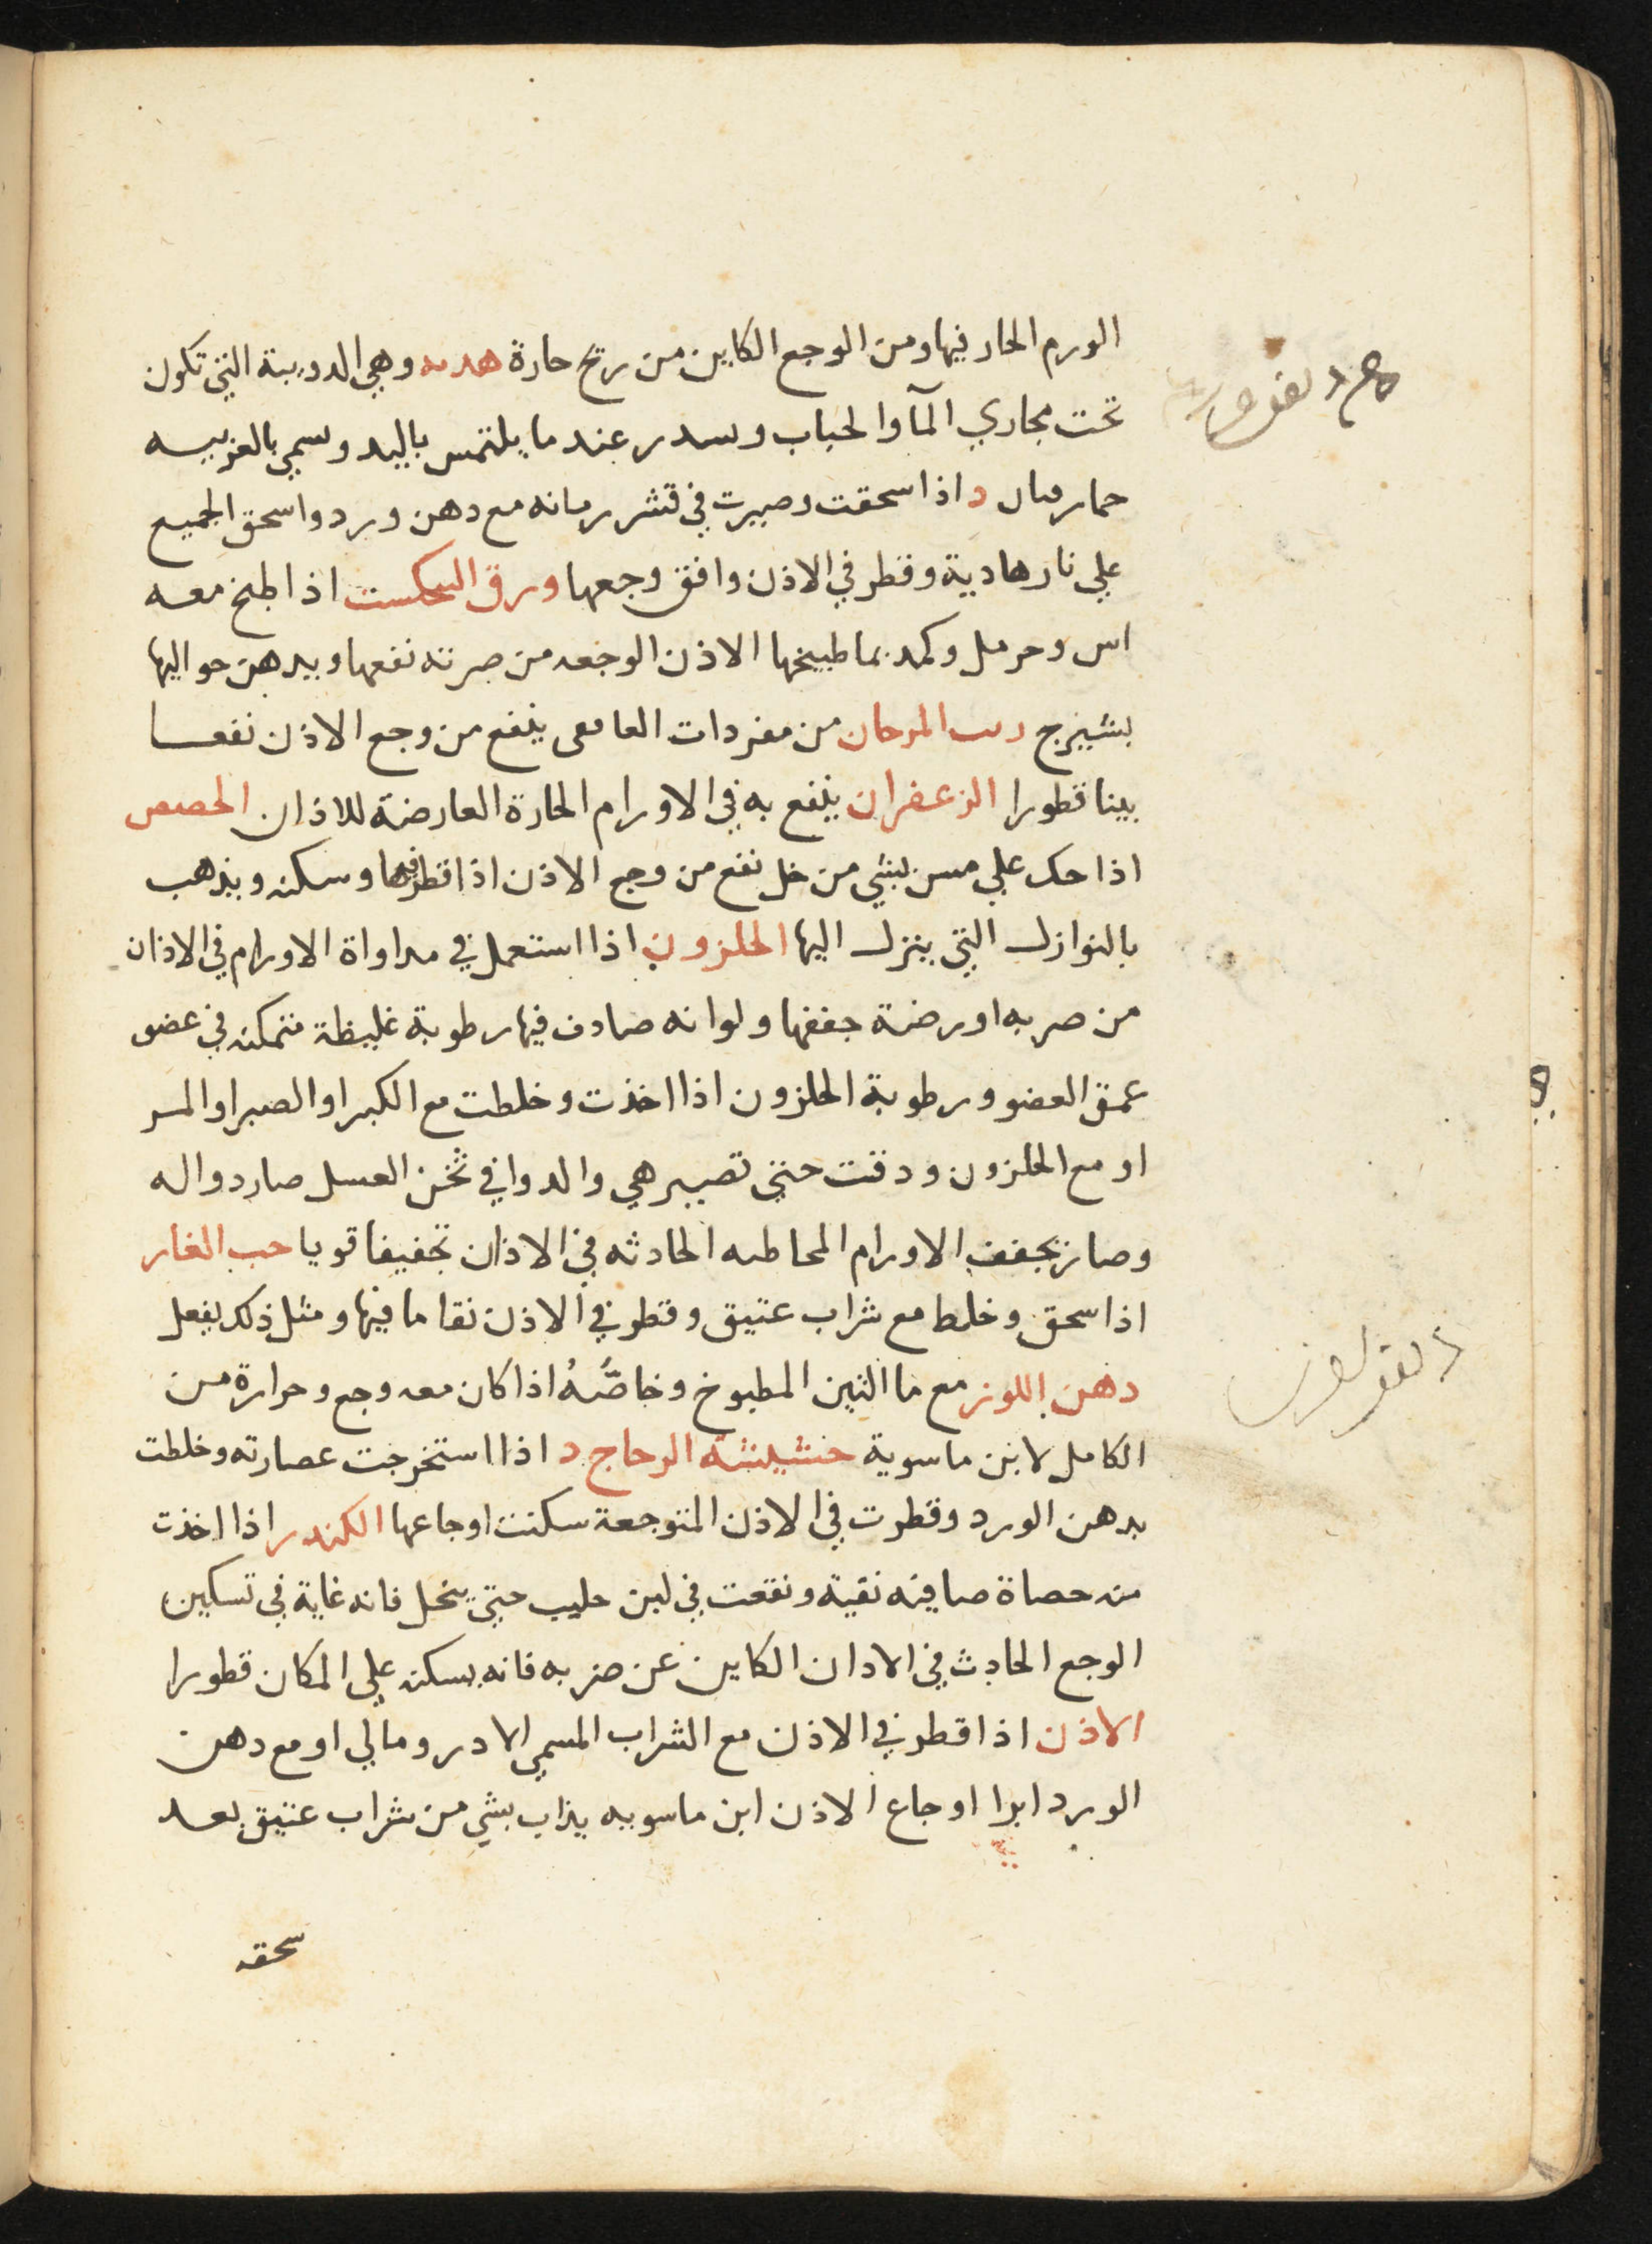 الورم الحار فيها ومن الوجع الكاين من ريح حارة هدبه وهي الدويبة التي تكون
تحت مجاري المآ والحباب وسدر عند ما يلتمس باليد وسمي بالعربيه
حمار قبان د اذا سحقت وصيرت في قشر رمانه مع دهن ورد واسحق الجميع
علي نار هادية وقطر في الاذن وافق وجعها ورق البنجكست اذا طبخ معه
اس وحرمل وكمد بما طبيخها الاذن الوجعه من ضربه نفعها ويدهن حواليها
بشيرج رب المرجان من مفردات الغافقي ينفع من وجع الاذن نفعا
بينا قطورا الزعفران ينفع به في الاورام الحارة العارضة للاذان الحضض
اذا حك علي مسن بشي من خل نفع من وجع الاذن اذا قطر فيها وسكنه ويذهب
بالنوازل التي ينزل اليها الحلزون اذا استعمل في مداواة الاورام في الاذان
من ضربه او رضة جففها ولو انه صادف فيها رطوبة غليظة متمكنه في عضو
عمق العضو ورطوبة الحلزون اذا اخذت وخلطت مع الكبر او الصبر او المر
او مع الحلزون ودقت حتي تصير هي والدوا في ثخن العسل صار دوا له
وصار يجفف الاورام المخاطيه الحادثه في الاذان تجفيفا قويا حب الغار
اذا سحق وخلط مع شراب عتيق وقطر في الاذن نقا ما فيها ومثل ذلك يفعل
دهن اللوز مع ما التين المطبوخ وخاصّهُ اذا كان معه وجع وحرارة من
الكامل لابن ماسوية حشيشة الزجاج د اذا استخرجت عصارته وخلطت
بدهن الورد وقطرت في الاذن المتوجعة سكنت اوجاعها الكندر اذا اخذت
منه حصاة صافيه نقية ونقعت في لبن حليب حتي ينحل فانه غاية في تسكين
الوجع الحادث في الاذان الكاين عن ضربه فانه يسكنه علي المكان قطورا
الاذن اذا قطر في الاذن مع الشراب المسمي الادرومالي او مع دهن
الورد ابرا اوجاع الاذن ابن ماسويه يذاب بشي من شراب عتيق بعد
سحقه